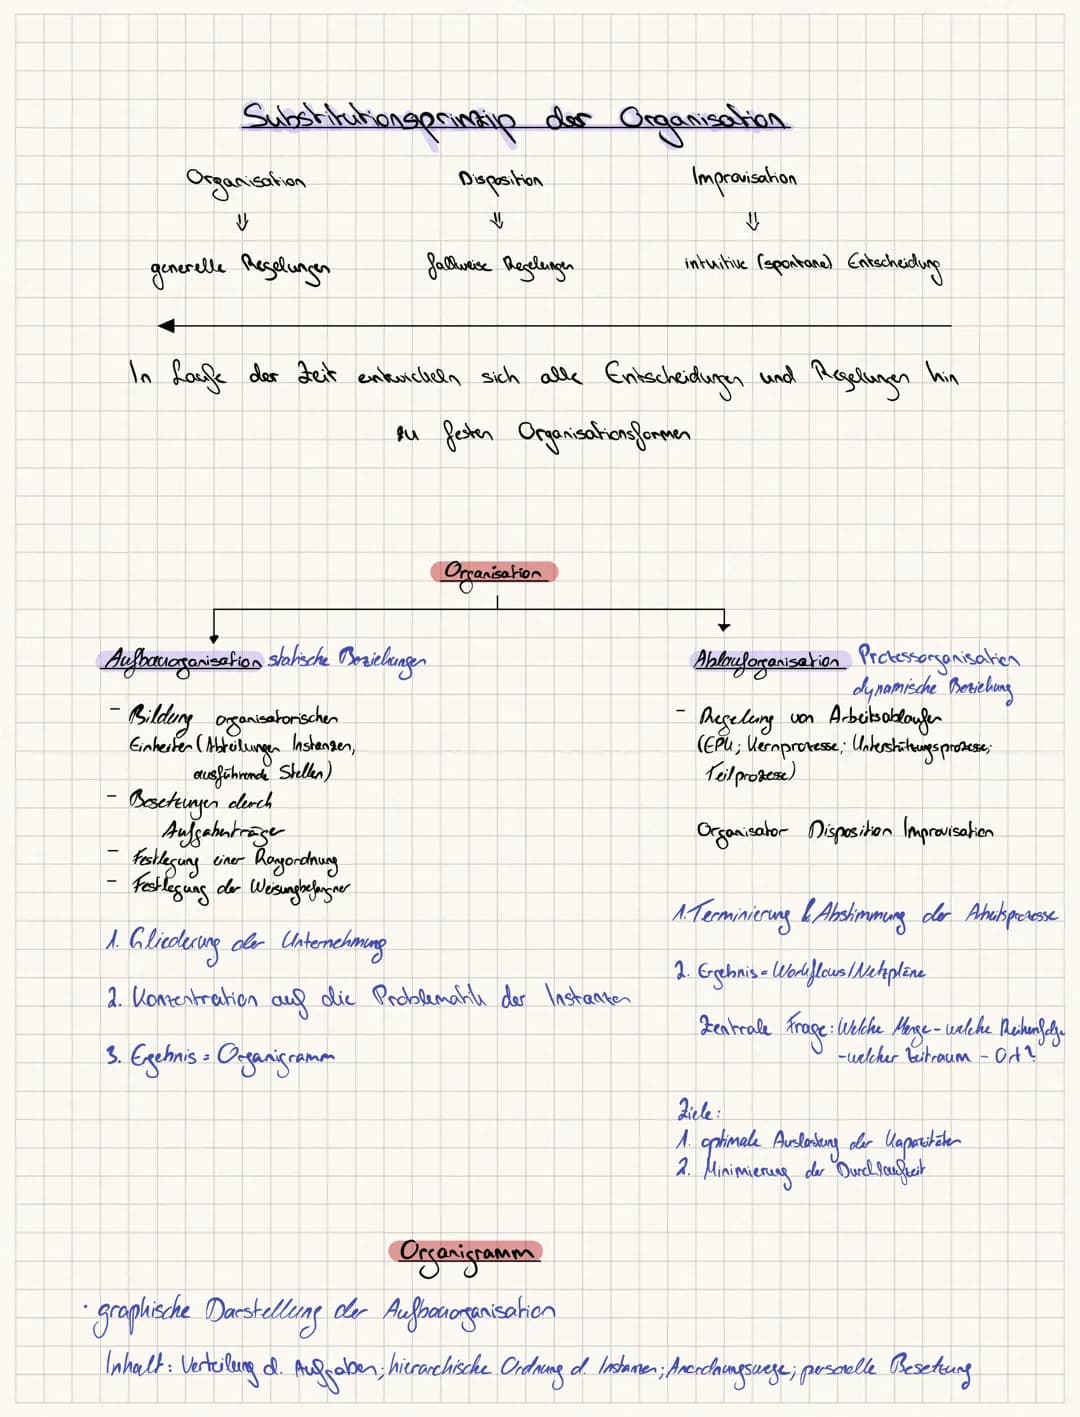 Substitutionsprinzip der Organisation
Organisation Disposition Improvisation
generelle Regelungen fallweise Regelungen intuitive (spontane) Entscheidung
In Laufe der Zeit entwickeln sich alle Entscheidungen und Regelungen hin
zu festen Organisationsformen
Organisation
Aufbauorganisation statische Beziehungen
- Bildung organisatorischen
Einheiten (Abteilungen Instanzen,
ausführende Stellen)
- Besetzungen durch
Aufgabenträger
- Festlegung einer Rangordnung
- Festlegung der Weisungbefugner
1. Gliederung der Unternehmung
2. Konzentration auf die Problematik der Instanzen
3. Ergebnis = Organigramm
Ablauforganisation Prozessorganisation
dynamische Beziehung
- Regelung von Arbeitsabläufen
(EPK; Kernprozesse; Unterstützungsprozesse;
Teilprozesse)
Organisator Disposition Improvisation
1. Terminierung & Abstimmung der Arbeitsprozesse
2. Ergebnis = Workflows/Netzpläne
Zentrale Frage: Welche Menge - welche Reihenfolge
- welcher Zeitraum - Ort?
Ziele:
1. optimale Auslastung der Kapazitäten
2. Minimierung der Durchlaufzeit
Organigramm
· graphische Darstellung der Aufbauorganisation
Inhalt: Verteilung d. Aufgaben; hierarchische Ordnung d. Instanzen; Anordnungswege; personelle Besetzung